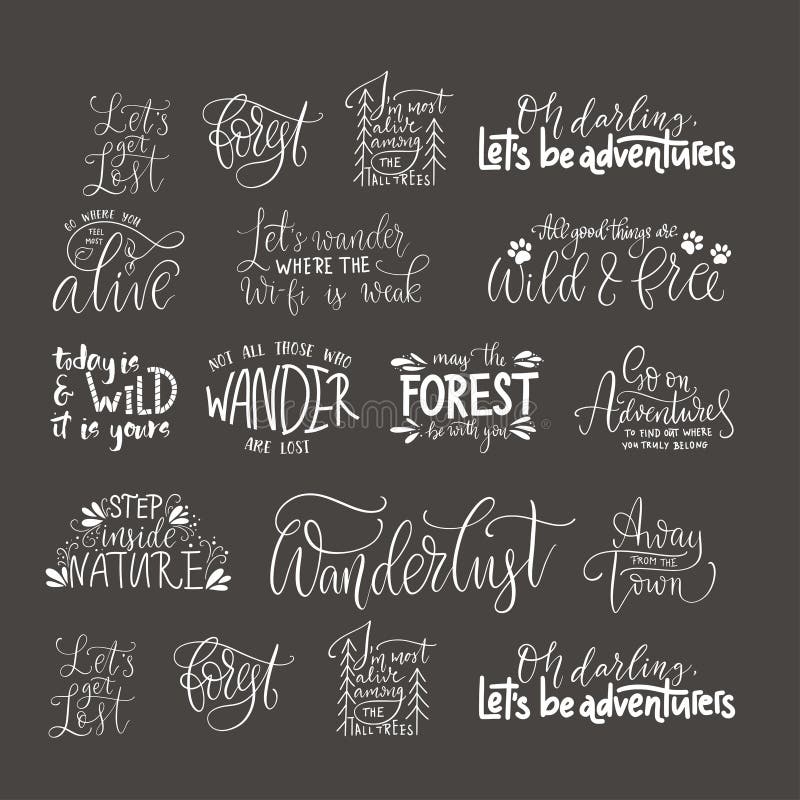 Let's
get
Lost
forest
I'm most
alive
among
THE
TALL TREES
Oh darling,
Let's be adventurers
GO WHERE YOU
FEEL
MOST
alive
Let's wander
WHERE THE
Wi-fi is weak
All good things are
Wild & free
today is
& WILD
it is yours
NOT ALL THOSE WHO
WANDER
ARE LOST
may the
FOREST
be with you
Go on
Adventures
TO FIND OUT WHERE
YOU TRULY BELONG
STEP
inside
NATURE
Wanderlust
Away
FROM THE
Town
Let's
get
Lost
forest
I'm most
alive
among
THE
TALL TREES
Oh darling,
Let's be adventurers
dreamstime